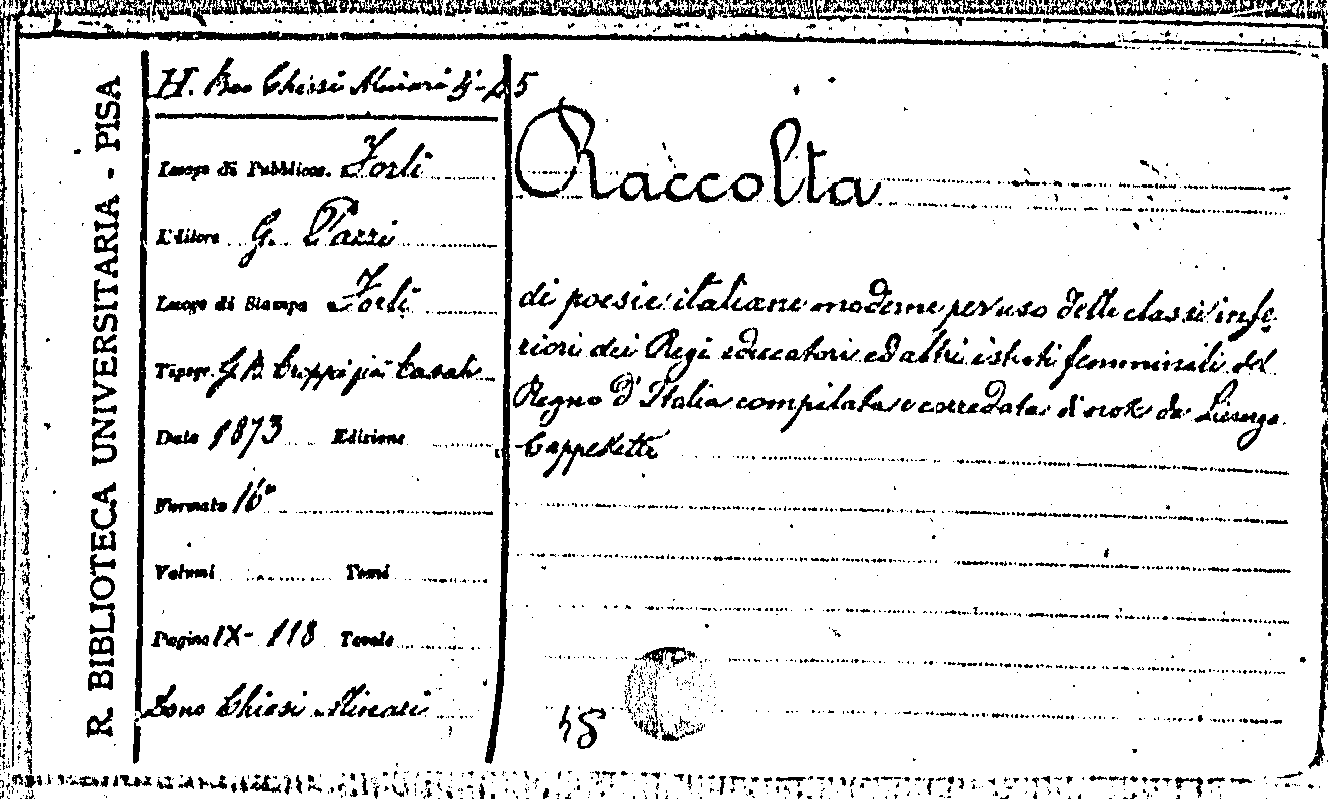 R. BIBLIOTECA UNIVERSITARIA - PISA
H. Chiesi
Luogo di Pubblicaz. Forlì
Editore G.
Luogo di Stampa Forlì
Tipogr. G. B. Croppi già Casali
Data 1873 Edizione
Formato 16°
Volumi Tomi
Pagine IX- 118 Tavole
Dono Chiesi
Raccolta
di poesie italiane moderne per uso delle classi infe
riori dei Regi educatori ed altri istituti femminili del
Regno d'Italia compilata e corredata di note da Licurgo
Cappelletti